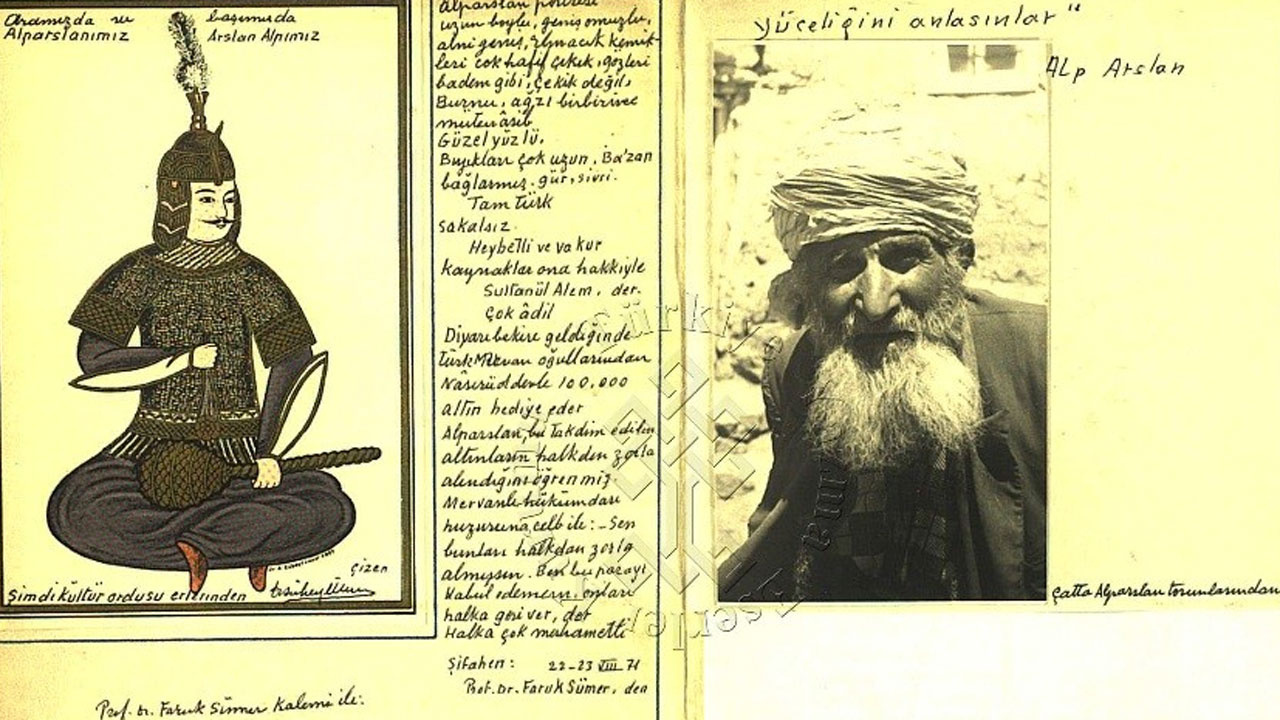 Aramızda ve başımızda
Alparslanımız Arslan Alpımız
çizen
Şimdi kültür ordusu erlerinden
Prof. Dr. Faruk Sümer Kalemi ile:
Alparslan portresi
uzun boylu, geniş omuzlu,
alnı geniş, elmacık kemik-
leri çok hafif çekik, gözleri
badem gibi, çekik değil,
Burnu, ağzı birbirine
mütenâsib
Güzel yüzlü,
Bıyıkları çok uzun. Ba'zan
bağlarmış. gür, sivri.
Tam türk
sakalsız
Heybetli ve vakur
kaynaklar ona hakkiyle
Sultanül Alem, der.
Çok âdil
Diyarıbekire geldiğinde
türk Mervan oğullarından
Nâsırüddevle 100,000
altın hediye eder
Alparslan, bu takdim edilen
altınların halkden zorla
alındığını öğrenmiş
Mervanlı hükümdarı
huzuruna celb ile: - Sen
bunları halkdan zorla
almışsın. Ben bu parayı
Kabul edemem. onları
halka geri ver, der
Halka çok merhametli
Şifahen: 22-23 VIII 71
Prof. Dr. Faruk Sümer. den
yüceliğini anlasınlar"
Alp Arslan
çatta Alparslan torunlarından